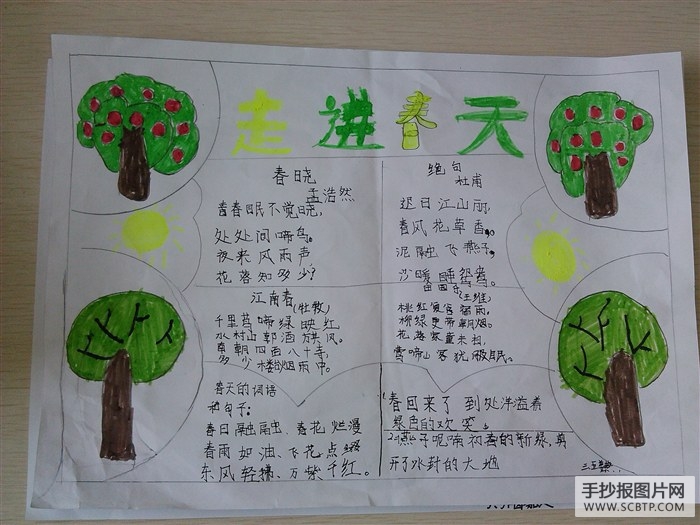 走进春天
春晓
孟浩然
春眠不觉晓,
处处闻啼鸟。
夜来风雨声
花落知多少?
绝句
杜甫
迟日江山丽,
春风花草香。
泥融飞燕子,
沙暖睡鸳鸯。
江南春(杜牧)
千里莺啼绿映红
水村山郭酒旗风。
南朝四百八十寺,
多少楼台烟雨中。
田园乐
(王维)
桃红复含宿雨,
柳绿更带朝烟。
花落家童未扫,
莺啼山客犹眠。
春天的词语
和句子:
春日融融、春花烂漫
春雨如油、飞花点翠
东风轻拂、万紫千红。
春回来了 到处洋溢着
绿色的欢笑。
2燕子呢喃初春的新绿,剪
开了冰封的大地
手抄报图片网
WWW.SCBTP.COM